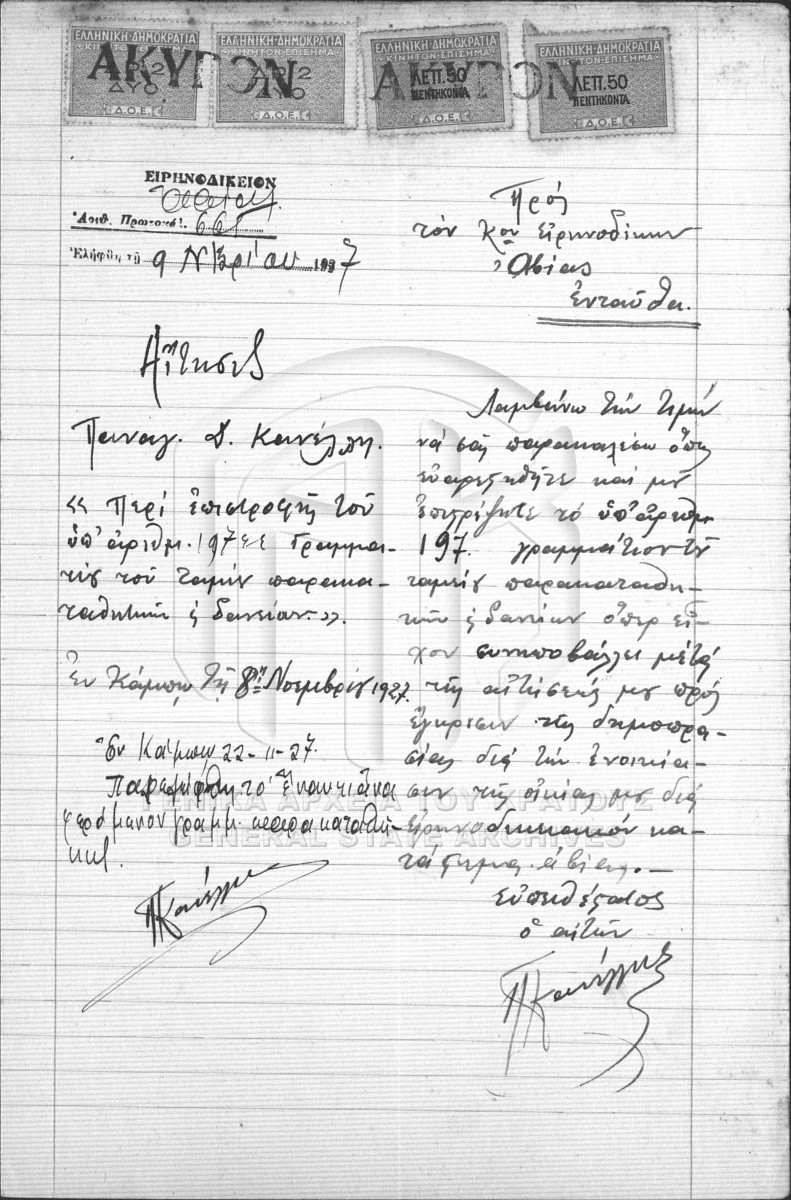 ΕΛΛΗΝΙΚΗ·ΔΗΜΟΚΡΑΤΙΑ
ΚΙΝΗΤΟΝ·ΕΠΙΣΗΜΑ
ΔΡ.2
ΔΥΟ
Δ.Ο.Ε.
ΕΛΛΗΝΙΚΗ·ΔΗΜΟΚΡΑΤΙΑ
ΚΙΝΗΤΟΝ·ΕΠΙΣΗΜΑ
ΔΡ.2
ΔΥΟ
Δ.Ο.Ε.
ΕΛΛΗΝΙΚΗ·ΔΗΜΟΚΡΑΤΙΑ
ΚΙΝΗΤΟΝ·ΕΠΙΣΗΜΑ
ΛΕΠ.50
ΠΕΝΤΗΚΟΝΤΑ
Δ.Ο.Ε.
ΕΛΛΗΝΙΚΗ·ΔΗΜΟΚΡΑΤΙΑ
ΚΙΝΗΤΟΝ·ΕΠΙΣΗΜΑ
ΛΕΠ.50
ΠΕΝΤΗΚΟΝΤΑ
Δ.Ο.Ε.
ΑΚΥΡΟΝ ΑΚΥΡΟΝ
ΕΙΡΗΝΟΔΙΚΕΙΟΝ
Ἀριθ. Πρωτοκόλ.
Ἐλήφθη τῇ 9 Ν/βρίου 1927
Πρός
τὸν Κον Εἰρηνοδίκην
Ἀβίας
Ἐνταῦθα.
Αἴτησις
Παναγ. Δ. Κανέλλη.
« Περὶ ἐπιστροφῆς τοῦ
ὑπ' ἀριθμ. 197 Γραμμα-
τίου τοῦ ταμείου παρακα-
ταθηκῶν & δανείων».
Ἐν Κάμπῳ τῇ 8ῃ Νοεμβρίου 1927.
Λαμβάνω τὴν τιμὴν
νὰ σᾶς παρακαλέσω ὅπως
εὐαρεστηθῆτε καὶ μοῦ
ἐπιστρέψητε τὸ ὑπ' ἀριθμ.
197 γραμμάτιον τοῦ
ταμείου παρακαταθη-
κῶν & δανείων ὅπερ εἶ-
χον συνυποβάλλει μετὰ
τῆς αἰτήσεώς μου πρὸς
ἔγκρισιν τῆς δημοπρα-
σίας διὰ τὴν ἐνοικία-
σιν τῆς οἰκίας μου διὰ
Εἰρηνοδικειακὸν κα-
τάστημα Ἀβίας.—
Εὐπειθέστατος
ὁ αἰτῶν
ΠΚανέλλης
Ἐν Κάμπῳ 22-11-27.
Παρελήφθη τὸ
γραμμ. παρακαταθή-
κης.
ΠΚανέλλης
ΓΕΝΙΚΑ ΑΡΧΕΙΑ ΤΟΥ ΚΡΑΤΟΥΣ
GENERAL STATE ARCHIVES